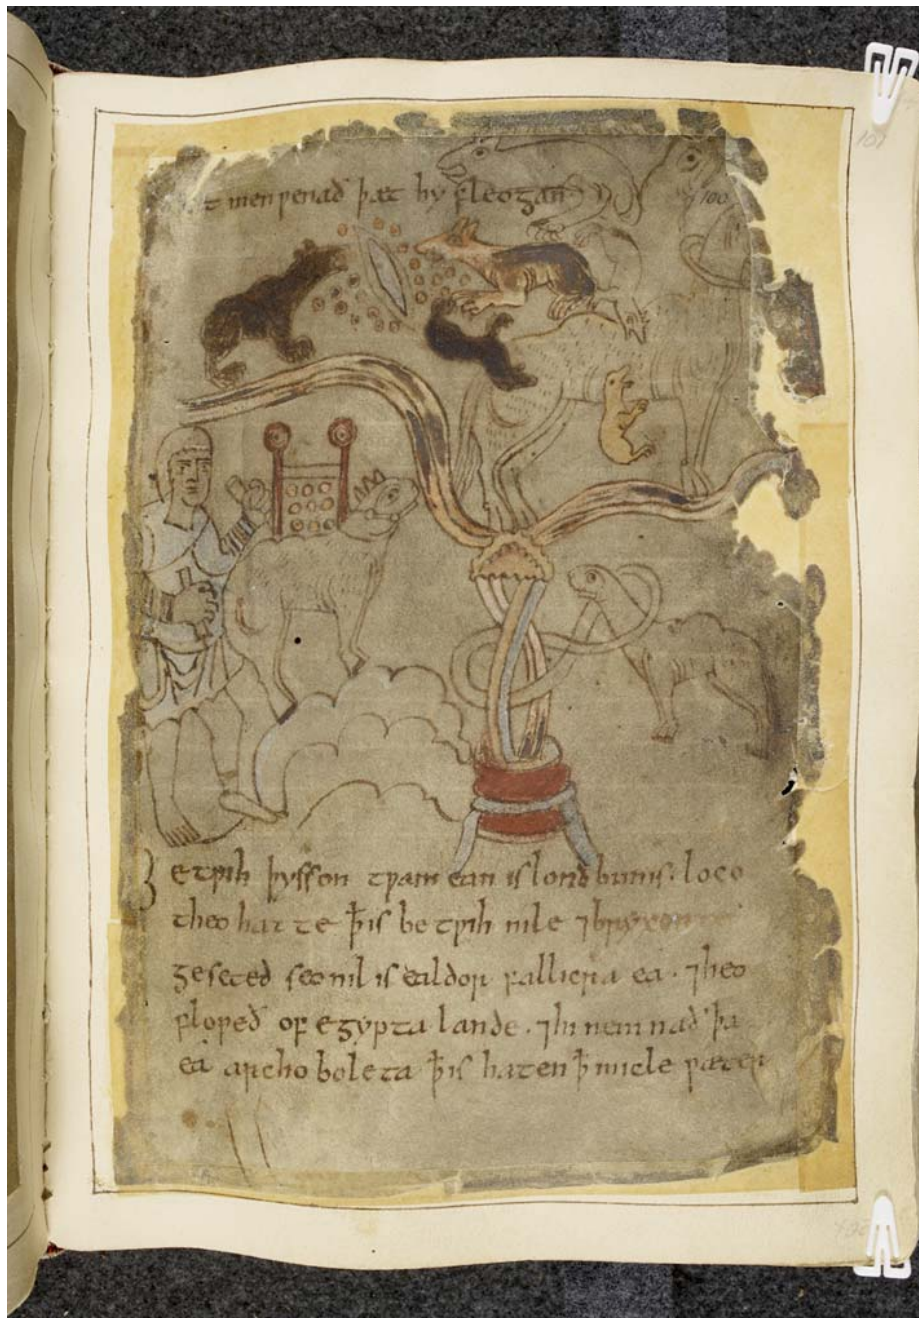 men penað þæt hy fleogan
100
101
Betƿih þysson tƿam ean is londbunis. loco
theo hatte ꝥ is betƿih nile ⁊ brixon
geseted seo nil is ealdor fallicra ea. ⁊ heo
floƿeð of egypta lande. ⁊ hi nemnað þa
ea archoboleta ꝥ is haten ꝥ micle ƿæter